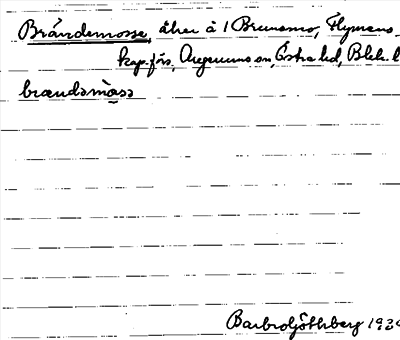 Brändemosse, åker å 1 Brunsmo, Flymens
kap.förs, Augerums sn, Östra hd, Blek. l
brændəmosə
Barbro Götlberg 1934